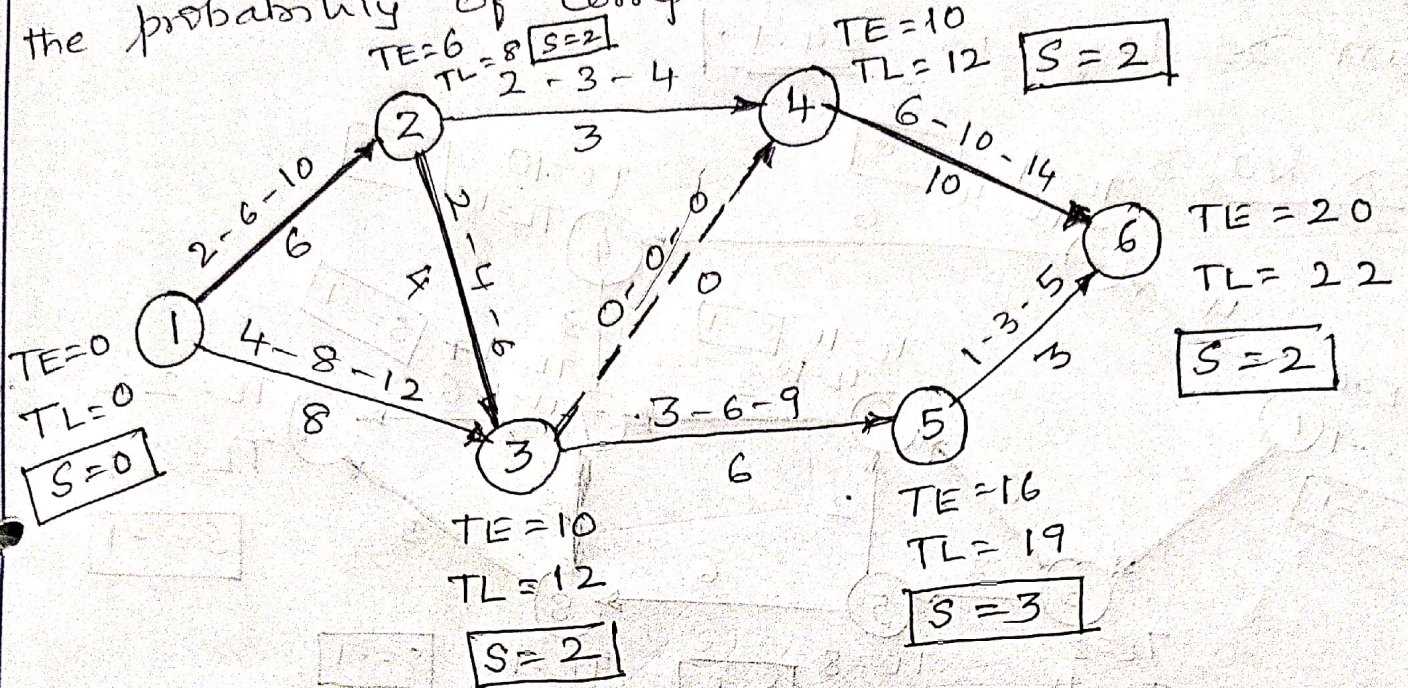 the probability of
TE=6
TL=8 S=2
2-3-4
3
TE=10
TL=12
S=2
2
4
2-6-10
6
2-4-6
4
0-0-0
0
6-10-14
10
6
TE=20
TL=22
S=2
1
TE=0
TL=0
S=0
4-8-12
8
3
3-6-9
6
5
1-3-5
3
TE=10
TL=12
S=2
TE=16
TL=19
S=3